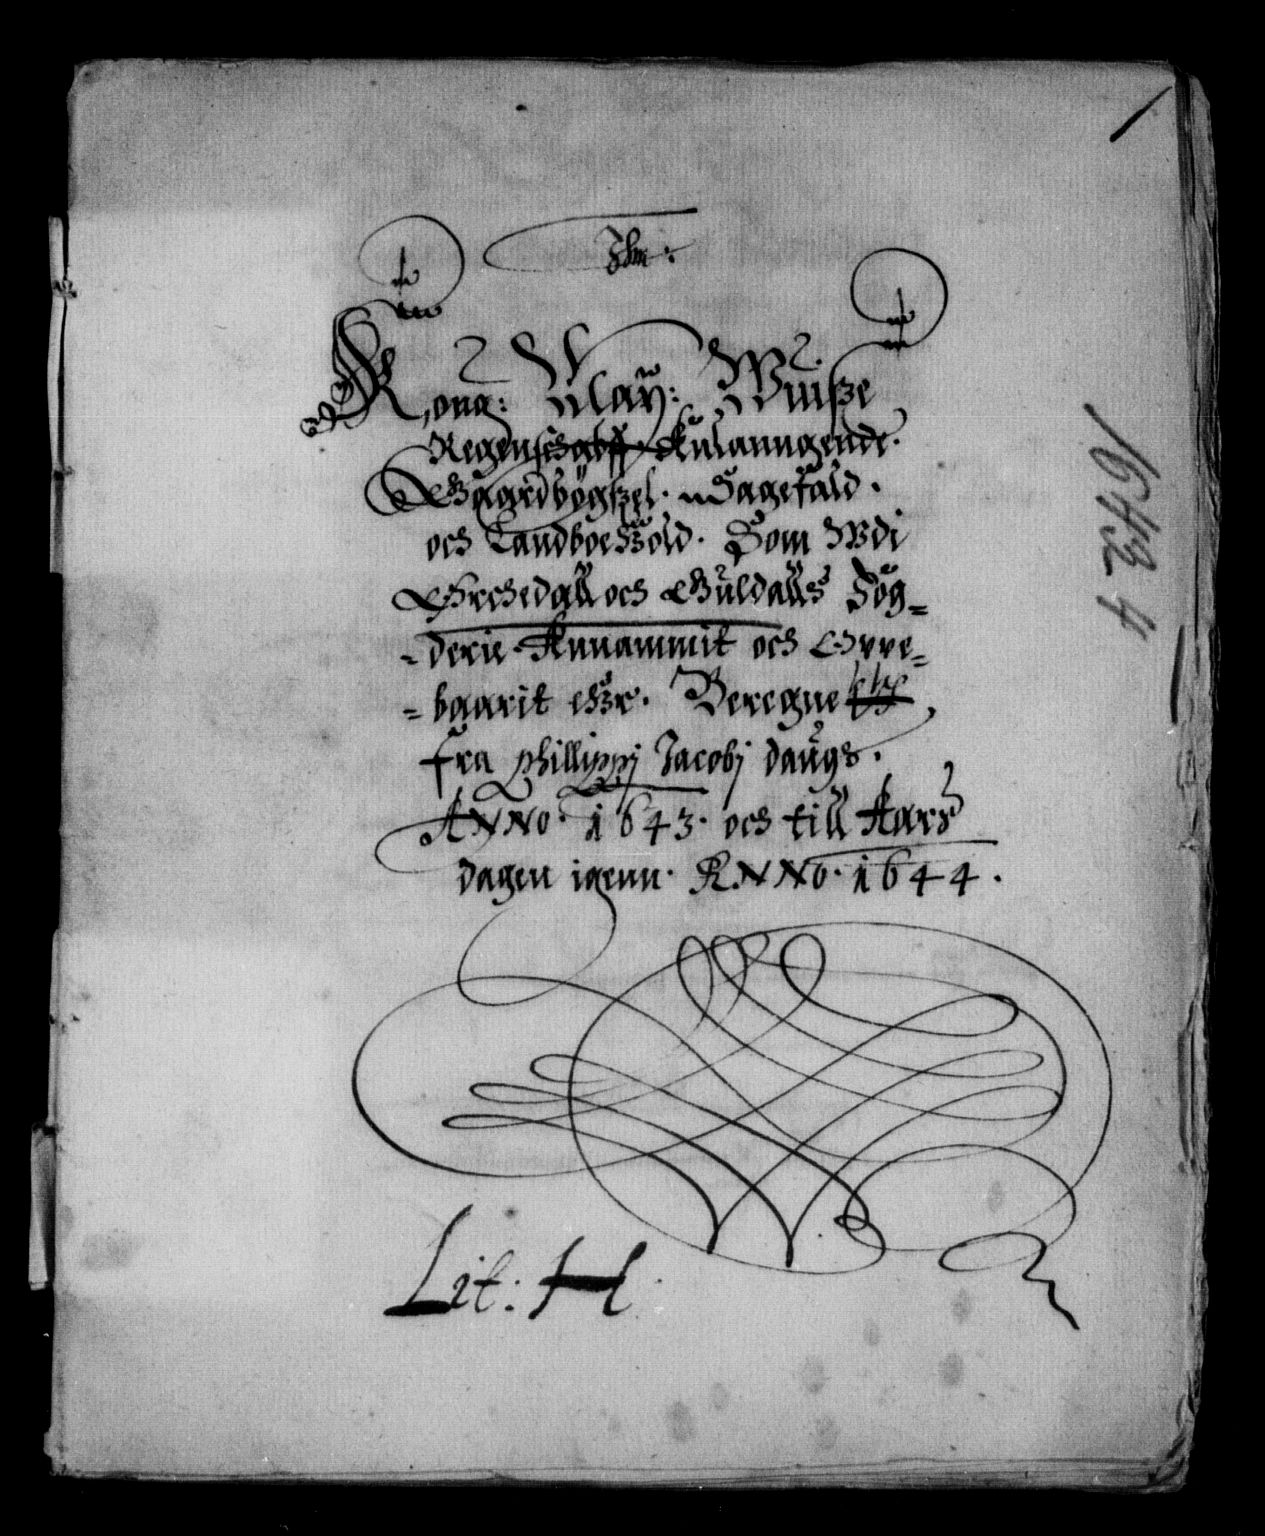 Ihm:
Kong: May: Wiisze
Regenschabff Anlanngende.
Gaardbÿgszel. Sagefald.
och Landboehold. Som Udi
Orchedall och Guldalls Fög-
-derie Annammit och Oppe-
-baarit ehr. Beregne
fra Phillippj Jacobj daugs.
ANNO. 1643. och till Aars
dagen igenn. ANNO. 1644.
Lit: H
1643 4